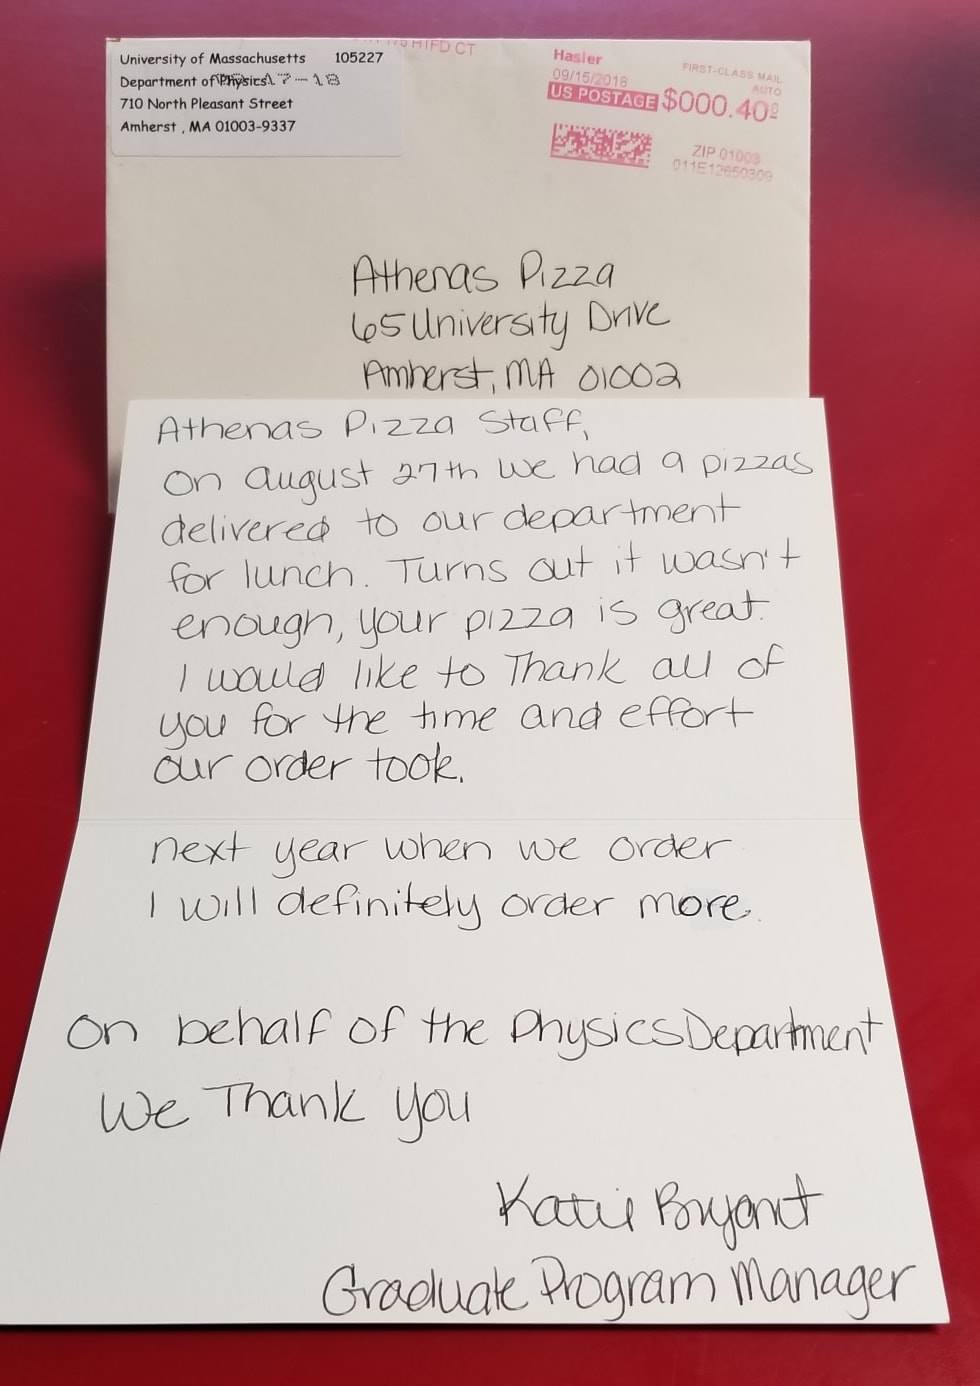 University of Massachusetts 105227
Department of Physics 17-18
710 North Pleasant Street
Amherst , MA 01003-9337
HTFD CT
Hasler
09/15/2018
US POSTAGE $000.40⁰
FIRST-CLASS MAIL
AUTO
ZIP 01003
011E12650309
Athenas Pizza
65 University Drive
Amherst, MA 01002
Athenas Pizza Staff,
On august 27th we had 9 pizzas
delivered to our department
for lunch. Turns out it wasn't
enough, your pizza is great.
I would like to Thank all of
you for the time and effort
our order took.
next year when we order
I will definitely order more.
On behalf of the Physics Department
We Thank you
Katie Bryant
Graduate Program Manager